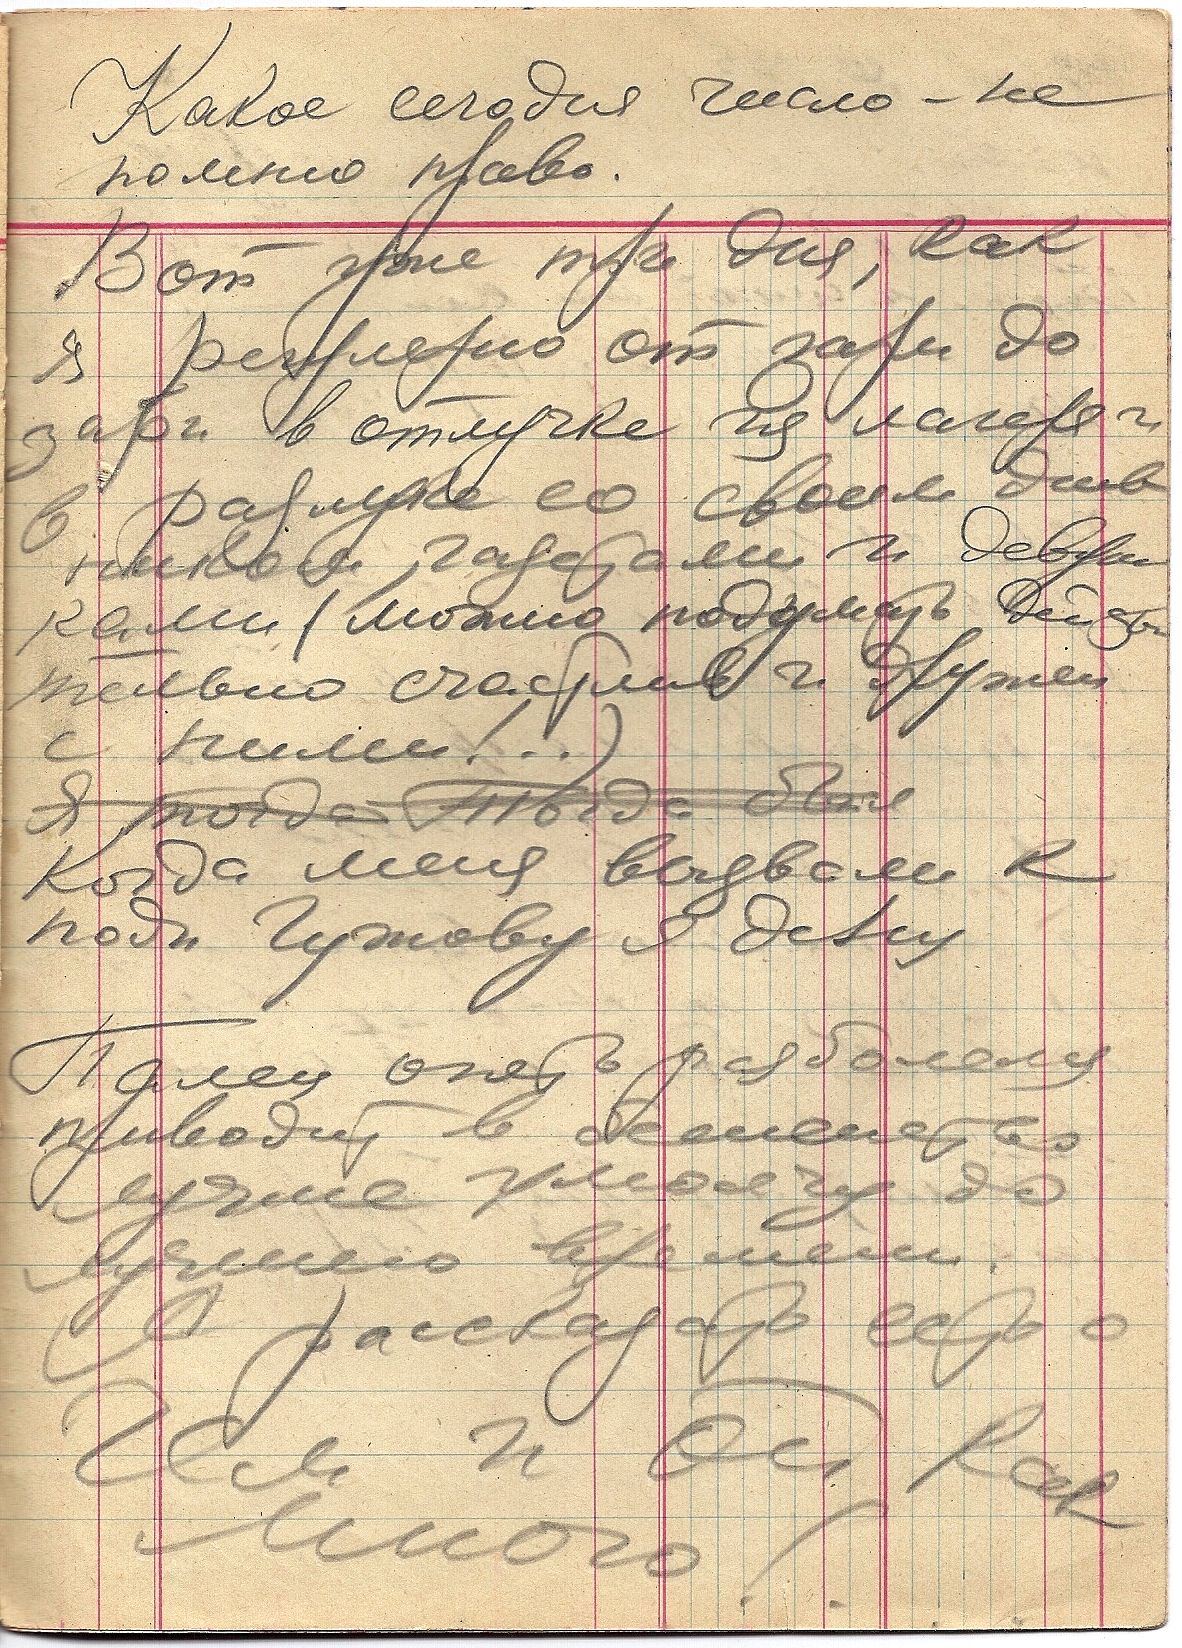 Какое сегодня число – не
помню право.
Вот уже три дня, как
я регулярно от зари до
зари в отлучке из лагеря и
в разлуке со своим днев
ником газетами и девуш
ками (можно подумать действи
тельно счастлив и дружен
с ними!...)
Я тогда Тогда был
Когда меня вызвали к
подп. Гужову я
Палец опять разболелся
приводит в бешенство
лучше умолчу до
лучшего времени.
А рассказать есть о
чем и ой как
много!